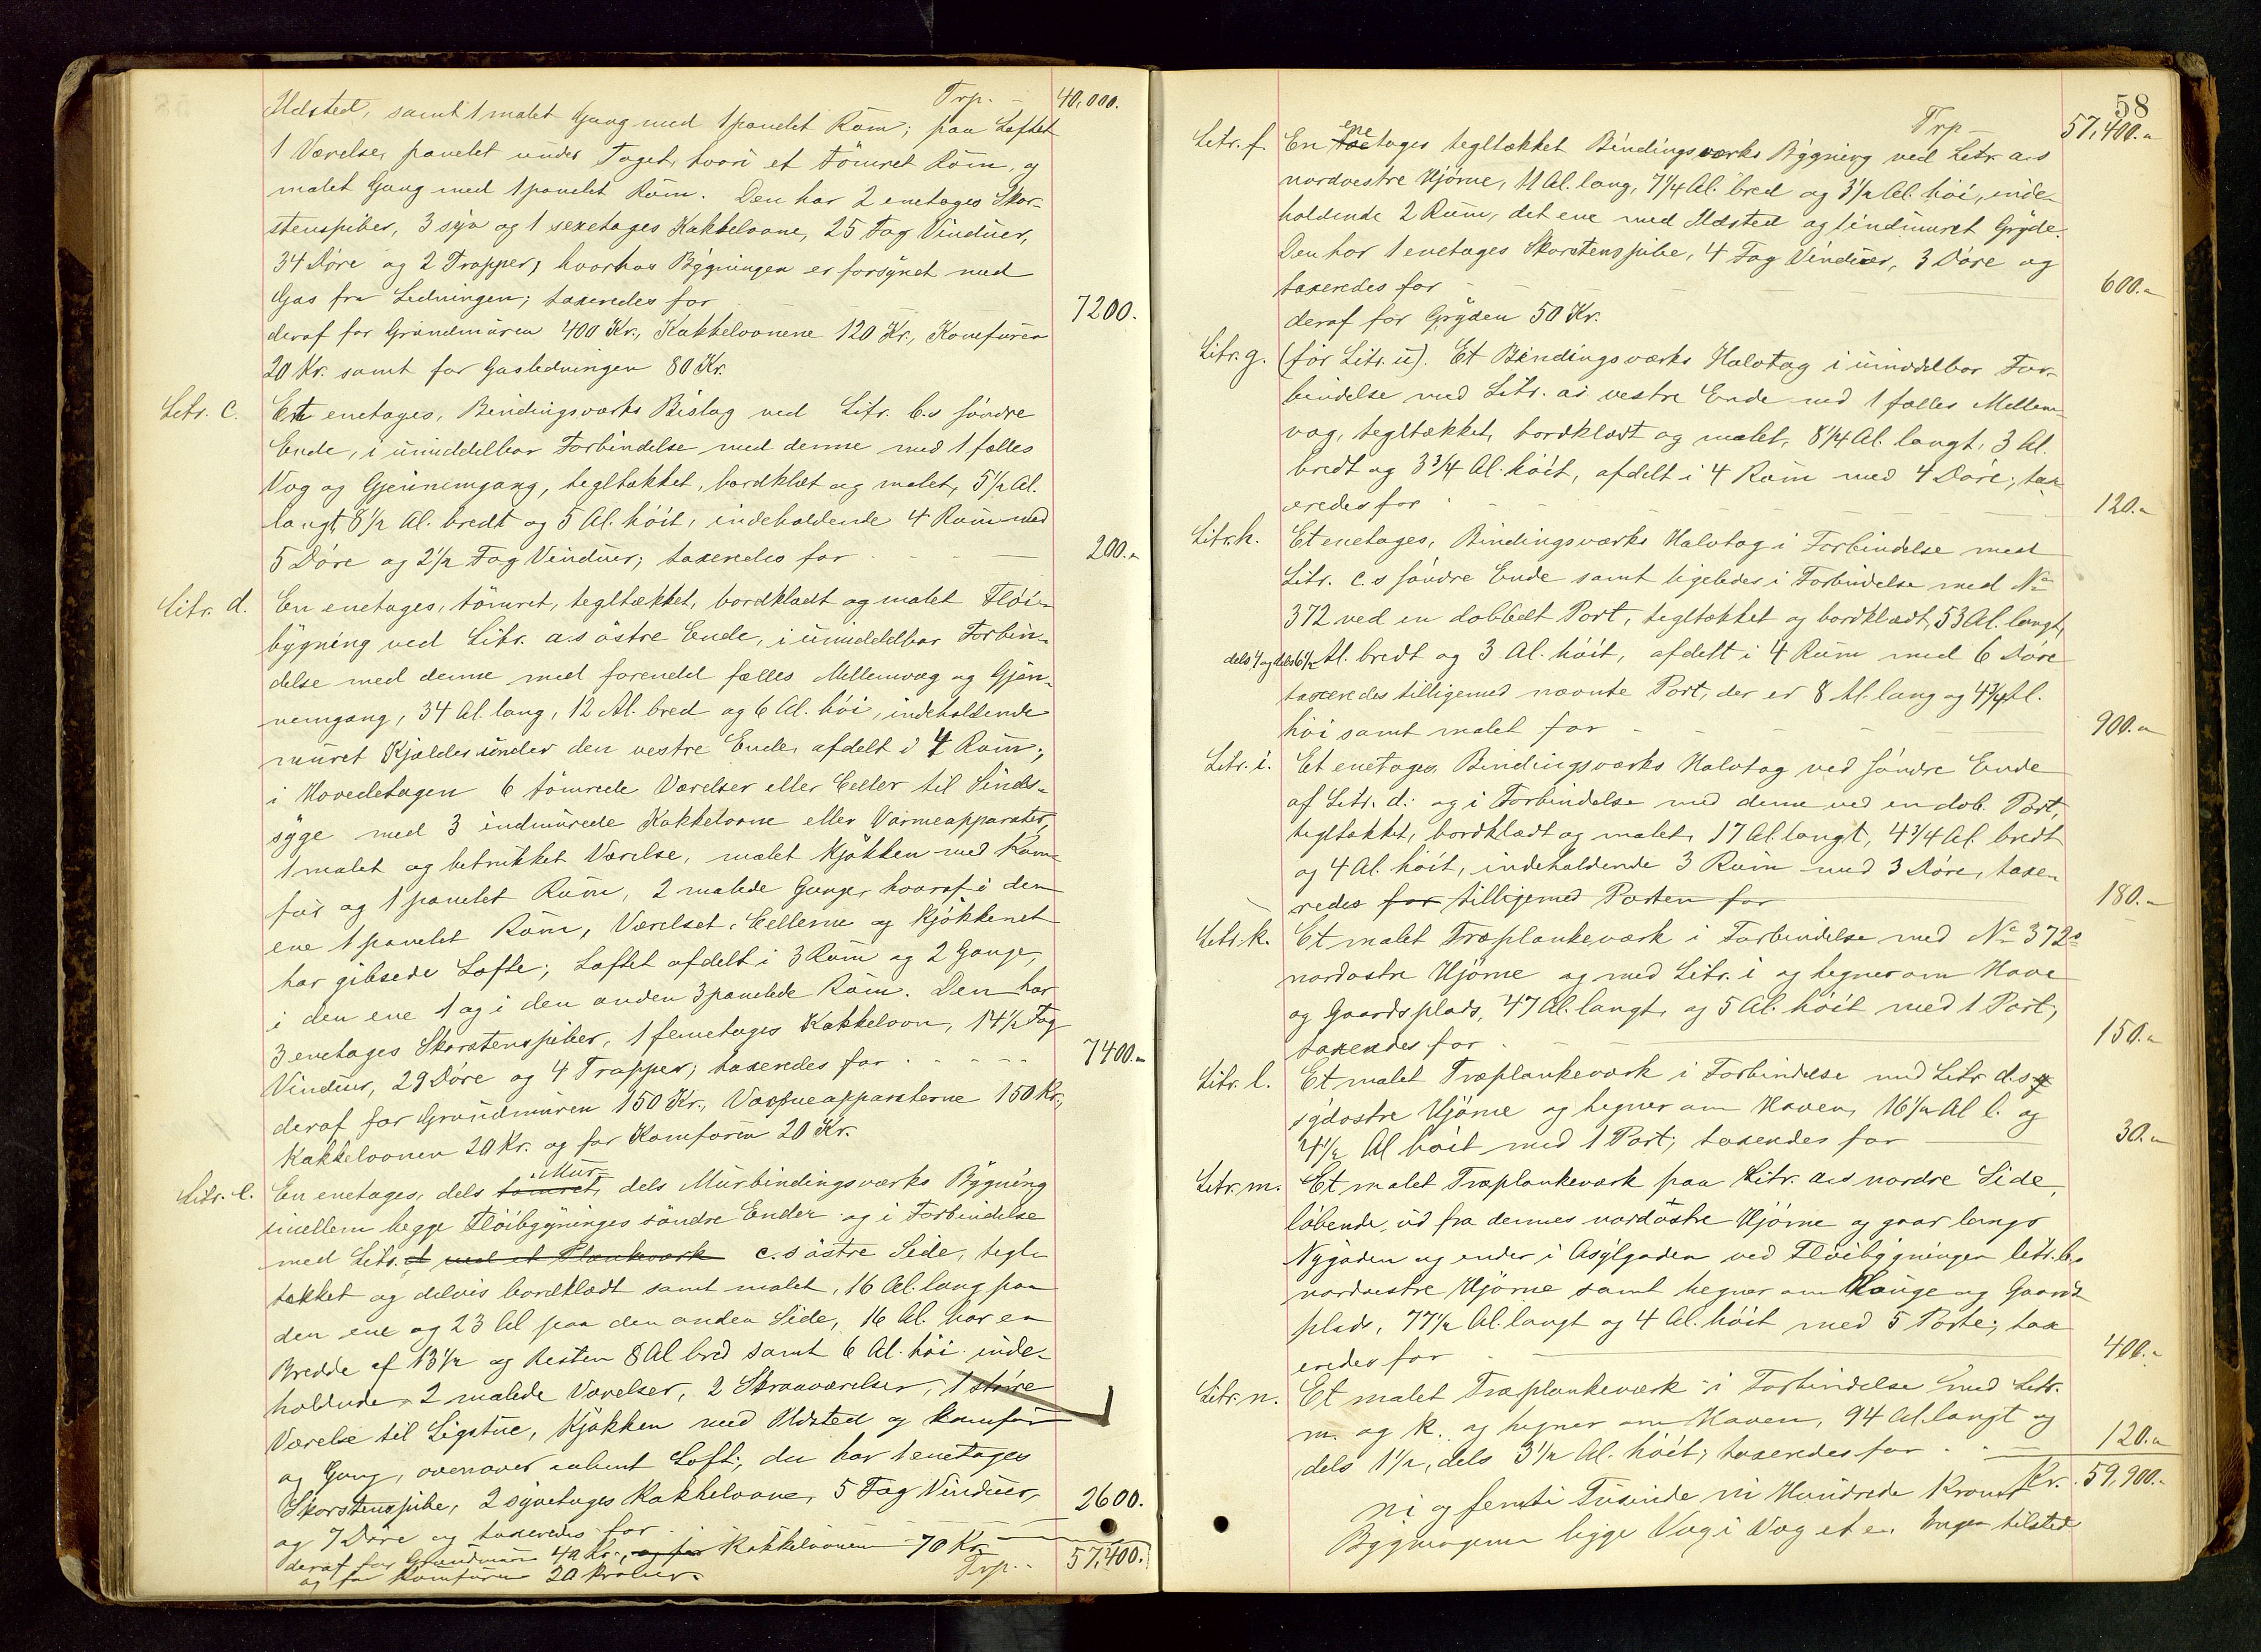 Trp. - 40,000.
Ildsted, samt 1 malet Gang med 1 panelet Rŭm; paa Loftet
1 Værelse, panelet under Taget, hvori et tömret Rŭm, og
malet Gang med 1 panelet Rŭm. Den har 2 enetages Skor-
stenspiber, 3 syv og 1 sexetages Kakkelovne, 25 Fag Vindŭer,
34 Döre og 2 Trapper, hvorhos Bÿgningen er forsÿnet med
Gas fra Ledningen; taxeredes for 7200.
deraf for Grŭndmŭren 400 Kr., Kakkelovnene 120 Kr., Komfuren
20 Kr. samt for Gasledningen 80 Kr.
Litr. c. Et enetages, Bindingsværks Bislag ved Litr. b.s söndre
Ende, i ŭmiddelbar Forbindelse med denne med 1 fælles
Væg og Gjennemgang, tegltækket, bordklæt og malet, 5 1/2 Al.
langt, 8 1/2 Al. bredt og 5 Al. höit, indeholdende 4 Rŭm med
5 Döre og 2 1/2 Fag Vindŭer; taxeredes for 200.-
Litr. d. En enetages, tömret, tegltækket, bordklædt og malet Flöi-
bygning ved Litr. a.s östre Ende, i ŭmiddelbar Forbin-
delse med denne med forendel fælles Mellemvæg og Gjen-
nemgang, 34 Al. lang, 12 Al. bred og 6 Al. höi, indeholdende
mŭret Kjælder ŭnder den vestre Ende, afdelt i 4 Rŭm;
i Hovedetagen 6 tömrede Værelser eller Celler til Sinds-
syge med 3 indmŭrede Kakkelovne eller Varmeapparater,
1 malet og betrukket Værelse, malet Kjökken med Kom-
fŭr og 1 panelet Rŭm, 2 malede Gange, hvoraf i den
ene 1 panelet Rŭm, Værelset, Cellerne og Kjökkenet
har gibsede Lofte; Loftet afdelt i 3 Rŭm og 2 Gange,
i den ene 1 og i den anden 3 panelede Rŭm. Den har
3 enetages Skorstenspiber, 1 femetages Kakkelovn, 14 1/2 Fag
Vindŭer, 29 Döre og 4 Trapper; taxeredes for 7400.-
deraf for Grŭndmŭren 150 Kr., Varmeapparaterne 150 Kr.,
Kakkelovnen 20 Kr. og for Komfuren 20 Kr.
Mŭr-
Litr. e. En enetages, dels tömret, dels Mŭrbindingsværks Bÿgning
imellem begge Flöibÿgninges söndre Ender og i Forbindelse
med Litr. d med et Plankværk c.s östre Side, tegl-
tækket og delvis bordklædt samt malet, 16 Al. lang paa
den ene og 23 Al paa den anden Side, 16 Al. har en
Bredde af 13 1/2 og Resten 8 Al bred samt 6 Al. höi inde-
holdende 2 malede Værelser, 2 Skraaværelser, 1 större
Værelse til Ligstŭe, Kjökken med Ildsted og Komfŭr
og Gang, ovenover Loft; den har 1 enetages
Skorstenspibe, 2 syvetages Kakkelovne, 5 Fag Vindŭer,
og 7 Döre og taxeredes for 2600.
deraf for Grundmŭr 40 Kr., og for Kakkelovnene 70 Kr.
og for Komfuren 20 Kroner. Trp. - 57,400.
58
Trp - 57,400.-
ene
Litr. f. En toetages tegltækket Bindingsværks Bÿgning ved Litr. a.s
nordvestre Hjörne, 11 Al. lang, 7 1/4 Al. bred og 3 1/2 Al. höi, inde-
holdende 2 Rŭm, det ene med Ildsted og 1 indmŭret Grÿde.
Den har 1 enetages Skorstenspibe, 4 Fag Vindŭer, 3 Döre og
taxeredes for 600.-
deraf for Grÿden 50 Kr.
Litr. g. (för Litr. ŭ). Et Bindingsværks Halvtag i ŭmiddelbar For-
bindelse med Litr. a.s vestre Ende med 1 fælles Mellem-
væg, tegltækket, bordklædt og malet, 8 1/4 Al. langt, 3 Al.
bredt og 3 3/4 Al. höit, afdelt i 4 Rŭm med 4 Döre; tax-
eredes for 120.-
Litr. h. Et enetages, Bindingsværks Halvtag i Forbindelse med
Litr. c.s söndre Ende samt ligeledes i Forbindelse med No
372 ved en dobbelt Port, tegltækket og bordklædt, 53 Al. langt,
dels 4 og dels 6 1/2 Al. bredt og 3 Al. höit, afdelt i 4 Rŭm med 6 Döre
taxeredes tilligemed nævnte Port, der er 8 Al. lang og 4 3/4 Al.
höi samt malet for 900.-
Litr. i. Et enetages Bindingsværks Halvtag ved söndre Ende
af Litr. d. og i Forbindelse med denne ved en dob. Port,
tegltækket, bordklædt og malet, 17 Al. langt, 4 3/4 Al. bredt
og 4 Al. höit, indeholdende 3 Rŭm med 3 Döre, taxe-
redes for tilligemed Porten for 180.-
Litr. k. Et malet Træplankeværk i Forbindelse med No 372s
nordöstre Hjörne og med Litr. i og hegner om Have
og Gaardsplads, 47 Al. langt, og 5 Al. höit med 1 Port;
taxeredes for 150.-
Litr. l. Et malet Træplankeværk i Forbindelse med Litr. d.s
sÿdöstre Hjörne og hegner om Haven, 16 1/2 Al l. og
4 1/2 Al höit med 1 Port; taxeredes for 30.-
Litr. m. Et malet Træplankeværk paa Litr. a.s nordre Side,
löbende ŭd fra dennes nordöstre Hjörne og gaar langs
Nygaden og ender i Asÿlgaden ved Flöibÿgningen litr. b.s
nordvestre Hjörne samt hegner om Hauge og Gaards-
plads, 77 1/2 Al. langt og 4 Al. höit med 5 Porte; tax
eredes for 400.-
Litr. n. Et malet Træplankeværk i Forbindelse med Litr.
m. og k. og hegner om Haven, 94 Al. langt og
dels 1 1/2, dels 3 1/2 Al. höit; taxeredes for 120.-
Kr. 59,900.-
ni og femti Tusinde ni Hundrede Kroner
Bygningerne ligge Væg i Væg Ingen tilsted